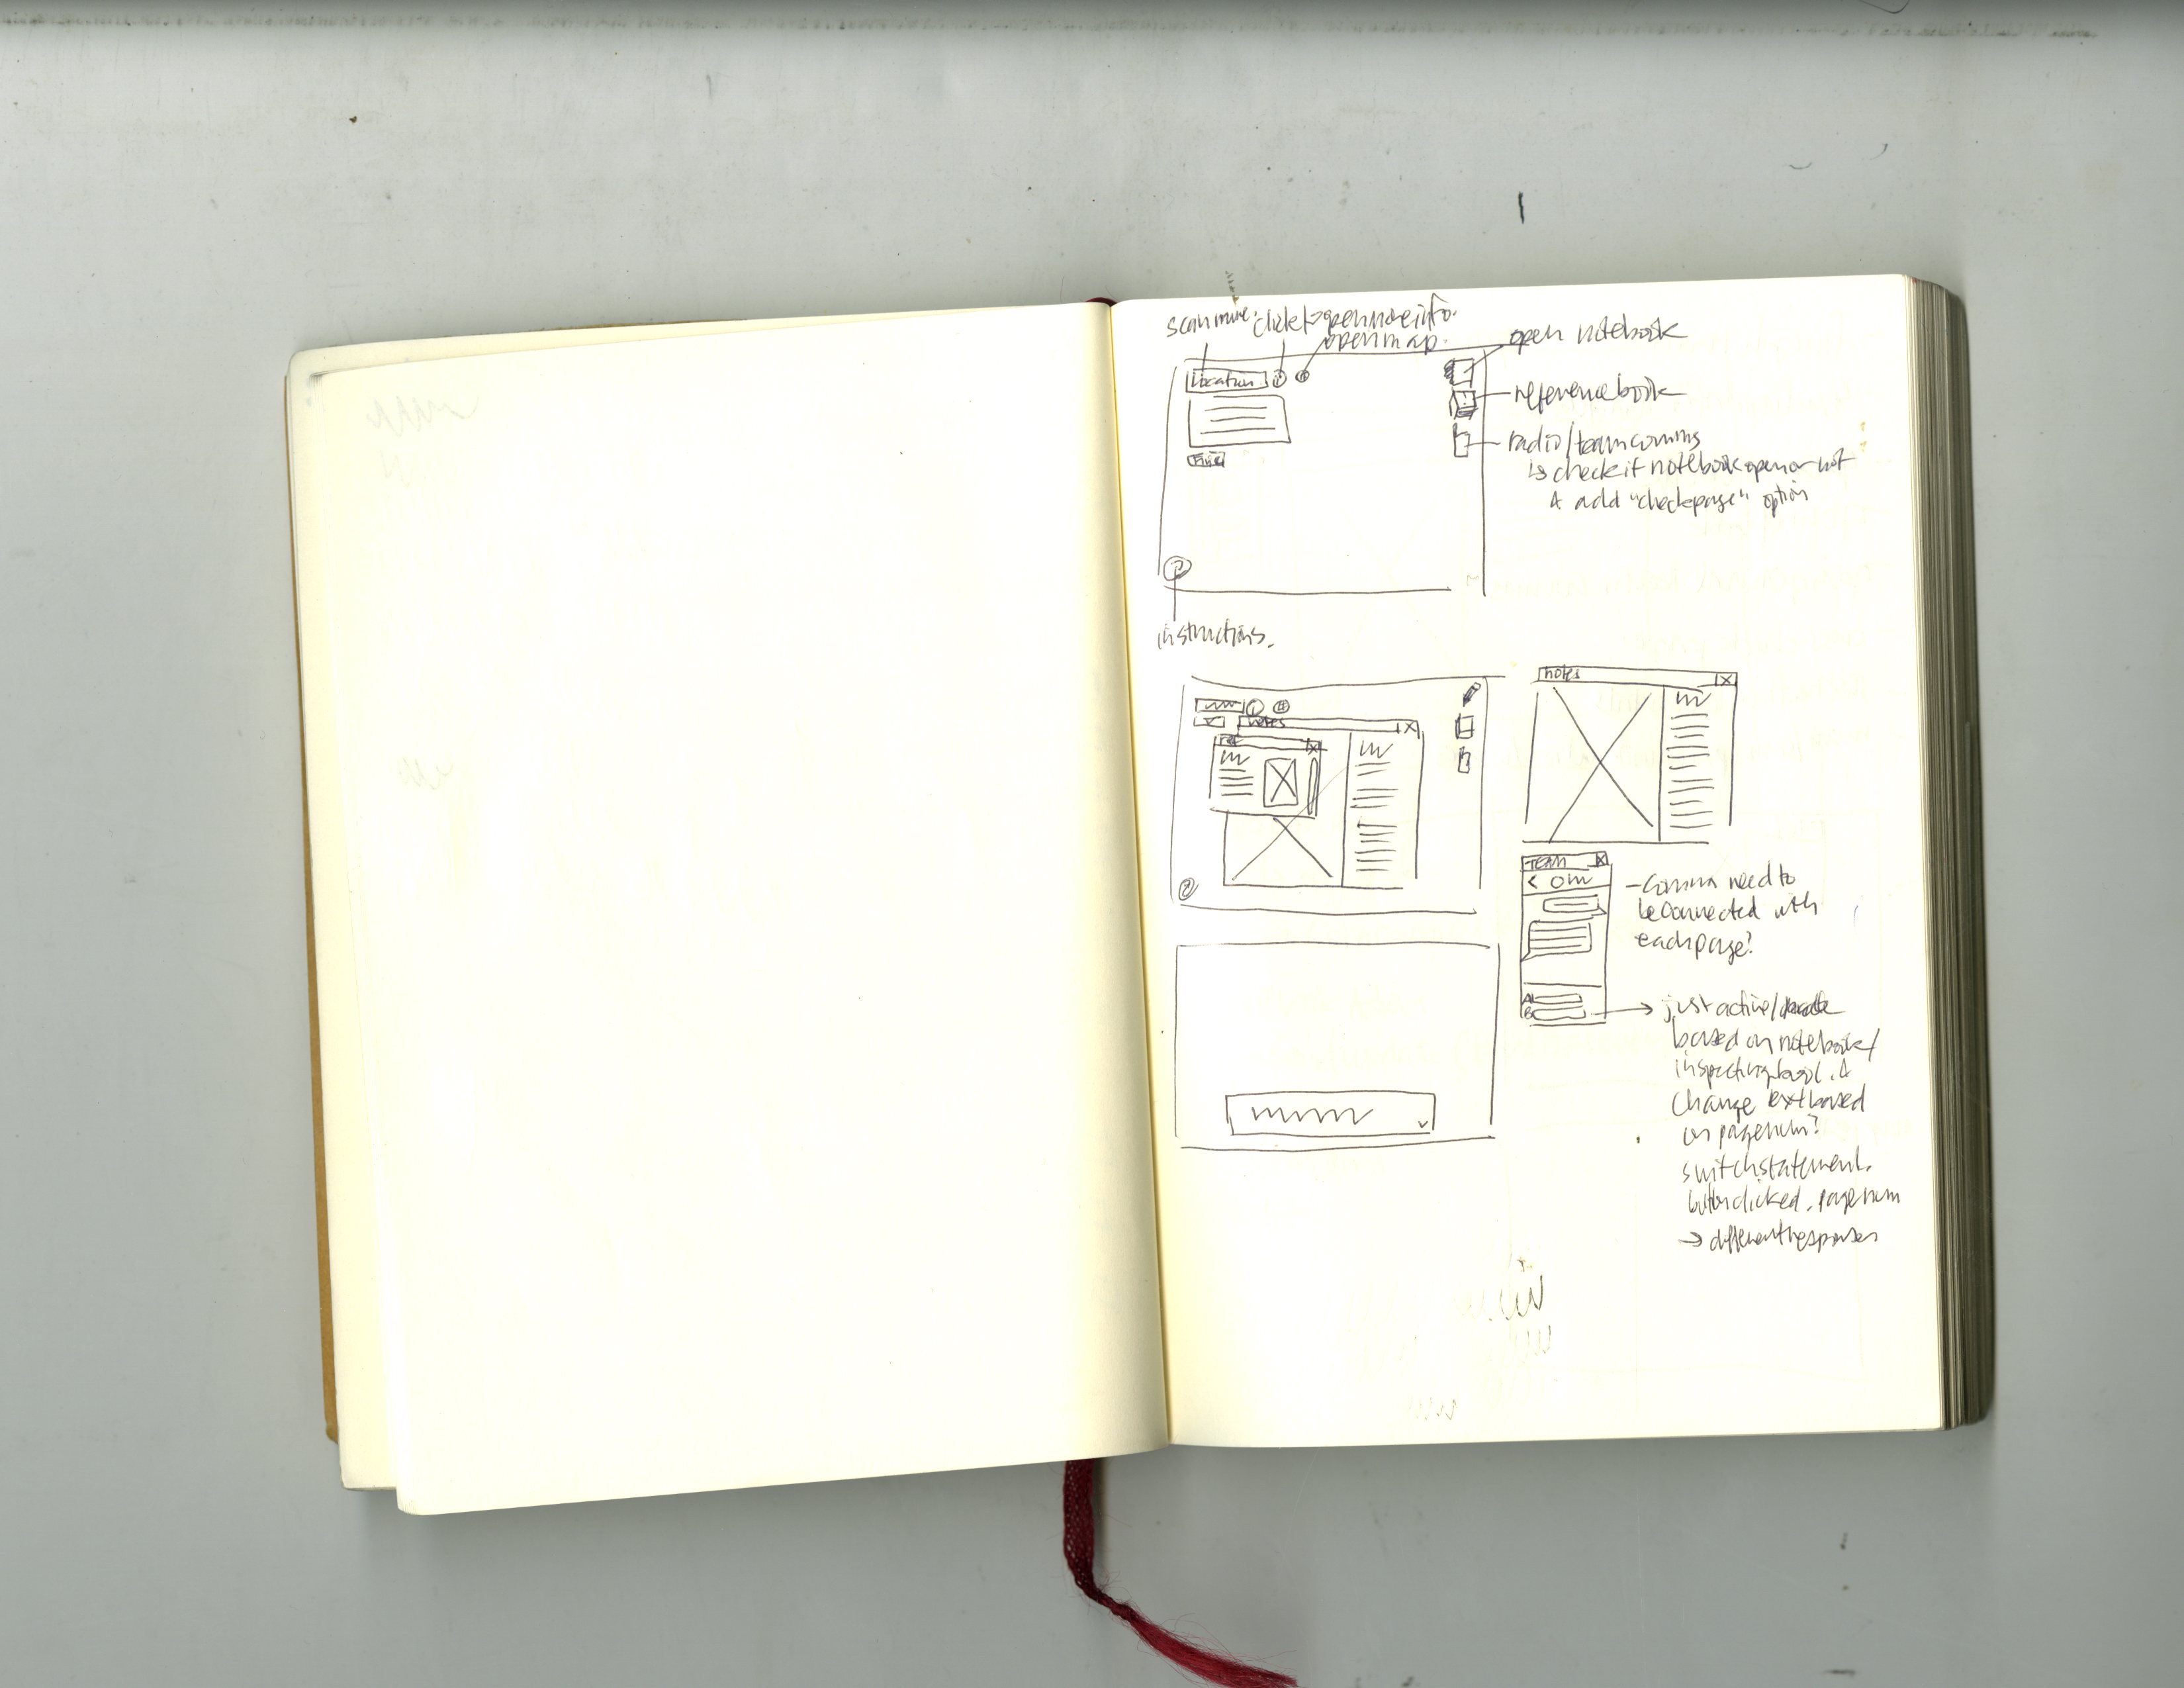 scan more. click → open more info.
open map.
open notebook
Location
reference book
radio/team comms
↳ check if notebook open or not
& add "check page" option
instructions.
notes
notes
ref
TEAM
- Comms need to
be connected with
each page?
A
B
→ just active/
based on notebook/
inspecting &
change text based
on page num?
switch statement.
button clicked, page num
→ different responses